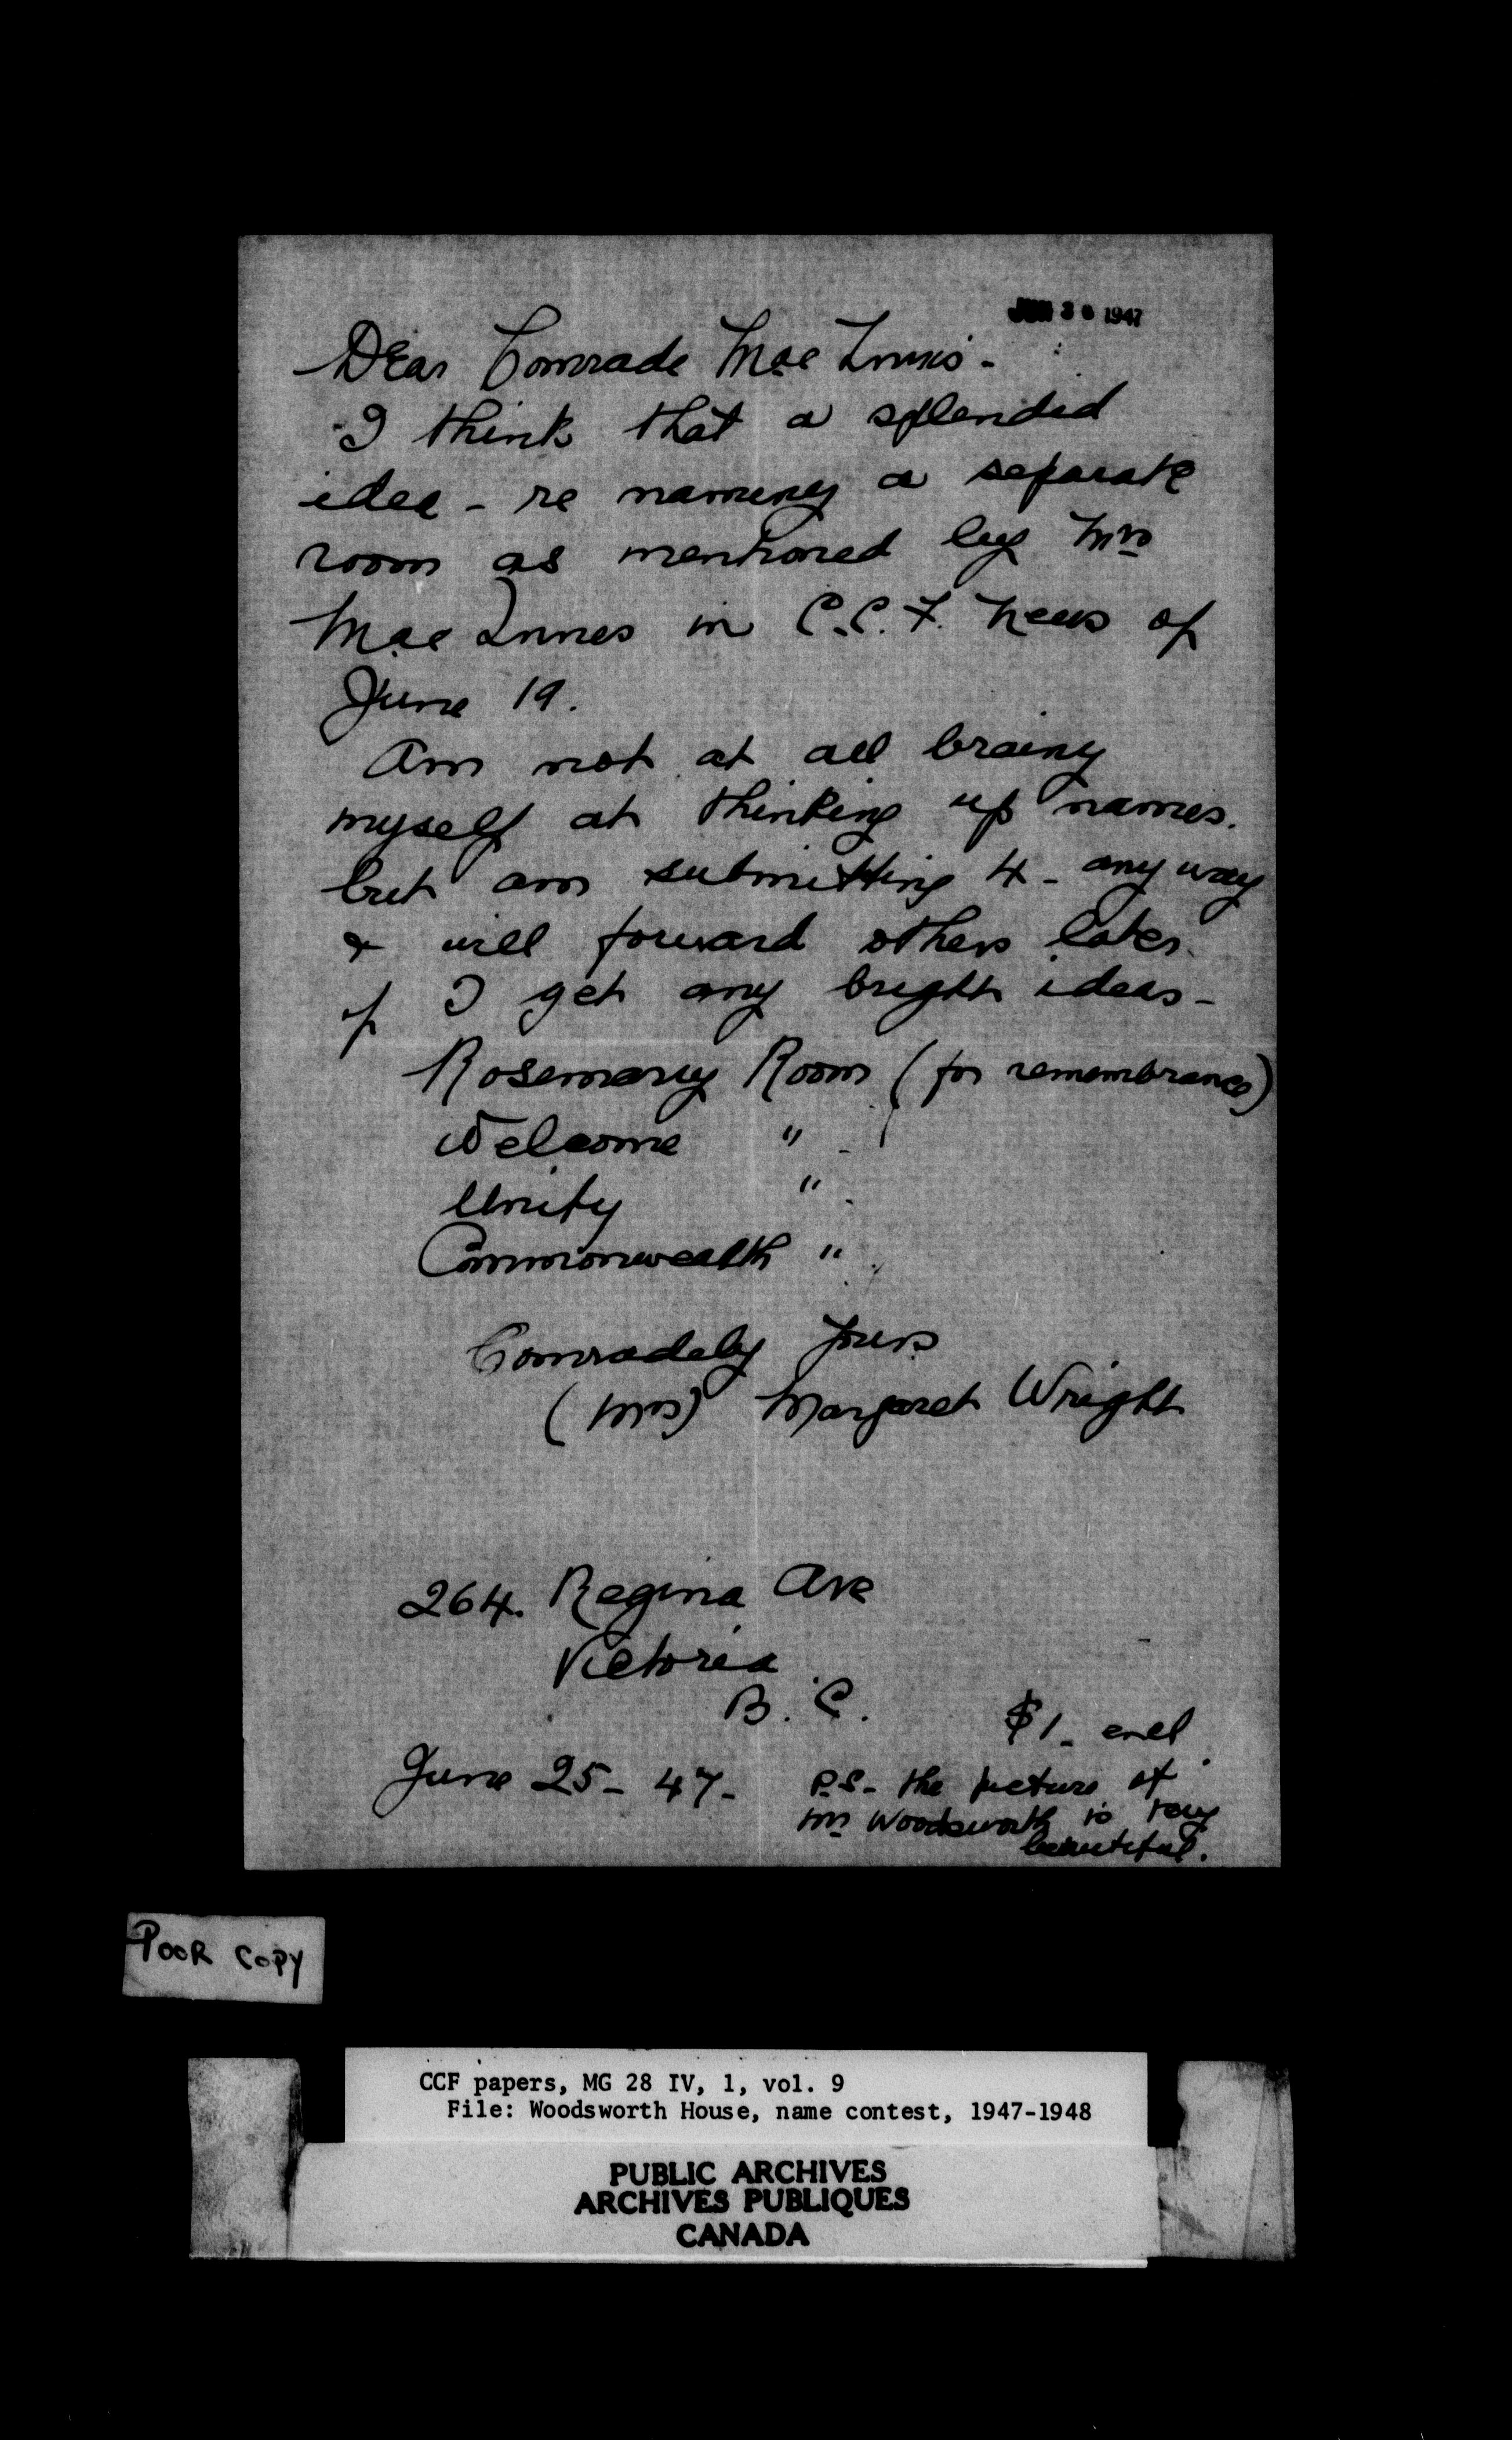 JUN 30 1947
Dear Comrade MacInnis -
I think that a splendid
idea - re naming a separate
room as mentioned by Mrs
MacInnes in C.C.F. News of
June 19.
Am not at all brainy
myself at thinking up names.
but am submitting 4 - any way
& will forward others later.
if I get any bright ideas -
Rosemary Room (for remembrance)
Welcome " -
Unity " .
Commonwealth " .
Comradely yours
(Mrs) Margaret Wright
264. Regina Ave
Victoria
B. C.
$1 - encl.
June 25 - 47 -
P.S. - the picture of
Mr Woodsworth is very
beautiful.
POOR COPY
CCF papers, MG 28 IV, 1, vol. 9
File: Woodsworth House, name contest, 1947-1948
PUBLIC ARCHIVES
ARCHIVES PUBLIQUES
CANADA